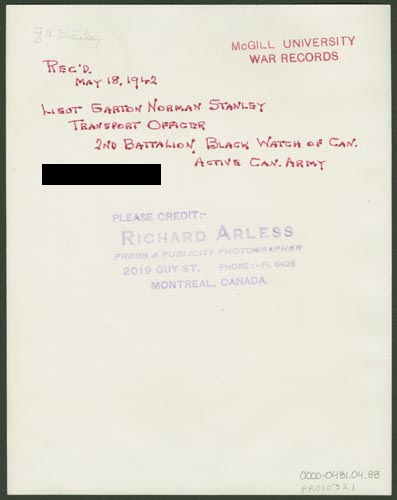 G.N. Stanley
McGILL UNIVERSITY
WAR RECORDS
REC'D.
MAY 18, 1942
LIEUT GARTON NORMAN STANLEY
TRANSPORT OFFICER
2ND BATTALION, BLACK WATCH OF CAN.
ACTIVE CAN. ARMY
PLEASE CREDIT:-
RICHARD ARLESS
PRESS & PUBLICITY PHOTOGRAPHER
2019 GUY ST. PHONE:-FL 6425
MONTREAL, CANADA.
0000-0481.04.88
PR010321